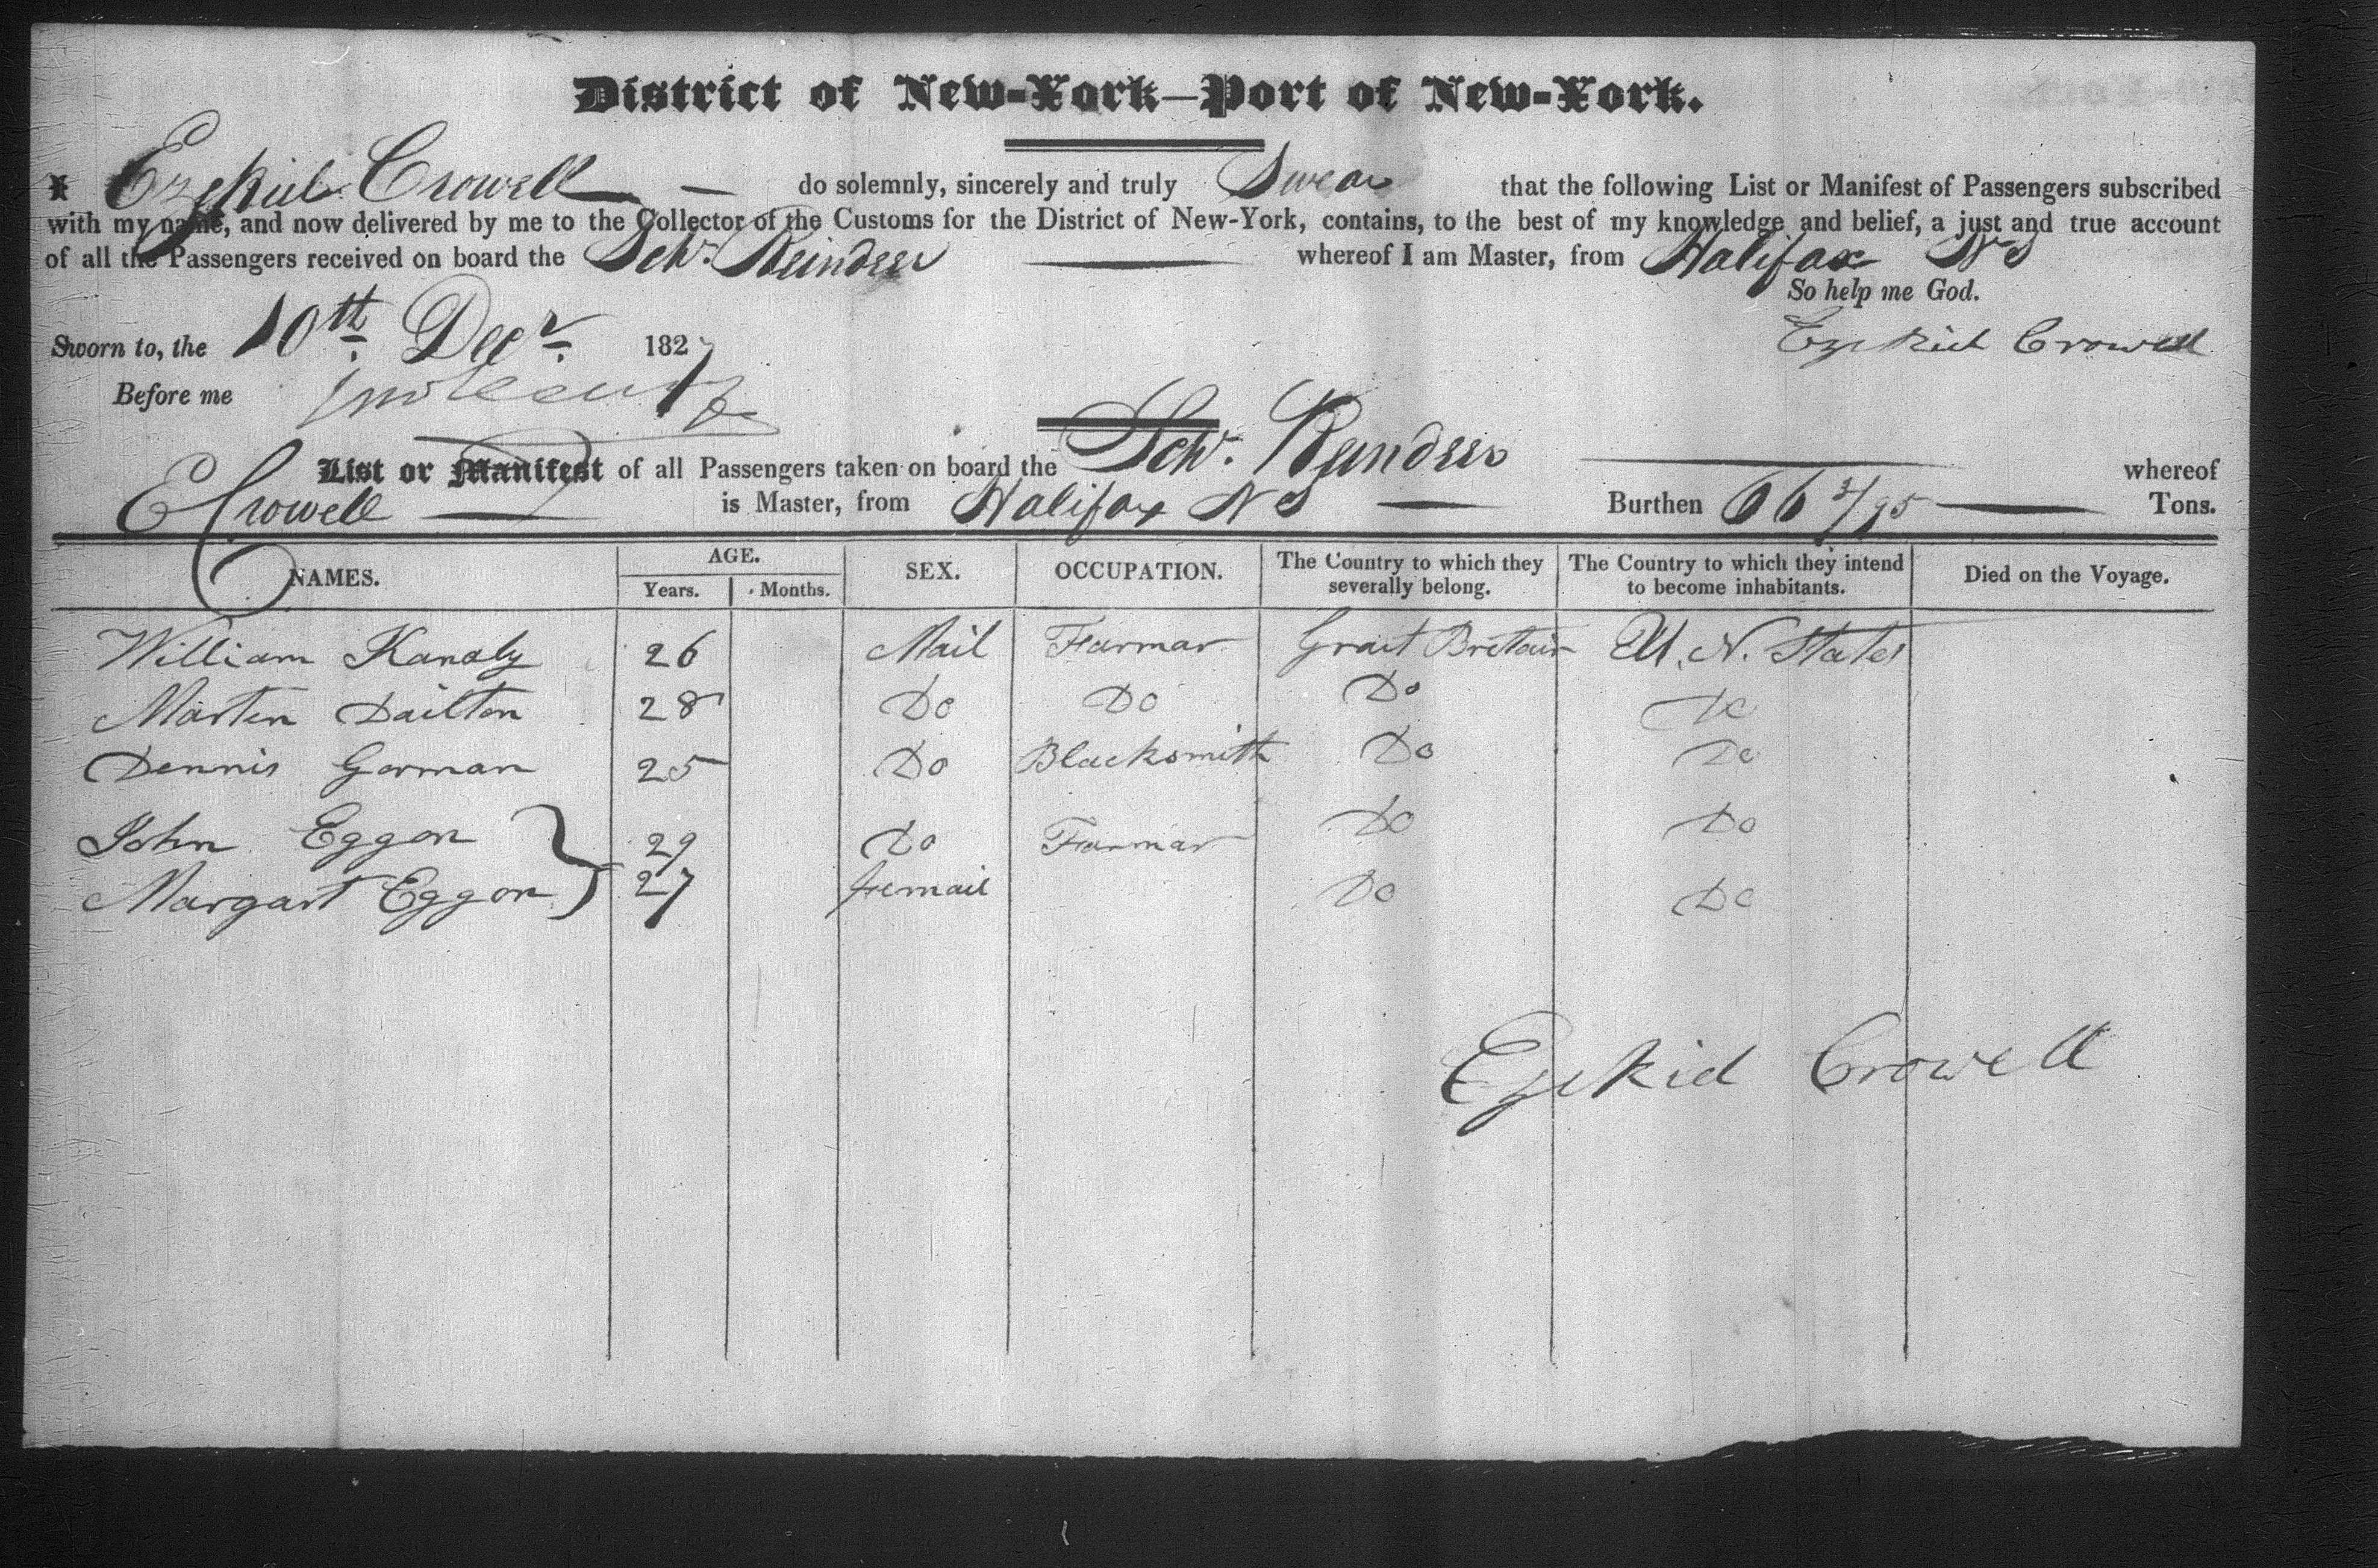 District of New-York—Port of New-York.
I Ezekiel Crowell — do solemnly, sincerely and truly Swear that the following List or Manifest of Passengers subscribed
with my name, and now delivered by me to the Collector of the Customs for the District of New-York, contains, to the best of my knowledge and belief, a just and true account
of all the Passengers received on board the Schr. Reindeer — whereof I am Master, from Halifax NS
So help me God.
Sworn to, the 10th. Decr. 1827 Ezekiel Crowell
Before me
List or Manifest of all Passengers taken on board the Schr. Reindeer — whereof
E Crowell — is Master, from Halifax NS — Burthen 66 3/95 — Tons.
NAMES. AGE. Years. Months. SEX. OCCUPATION. The Country to which they severally belong. The Country to which they intend to become inhabitants. Died on the Voyage.
William Kanaly 26 Mail Farmar Grait Bretain U. N. States
Marten Dailton 28 Do Do Do Do
Dennis Gorman 25 Do Blacksmith Do Do
John Eggon 29 Do Farmar Do Do
Margart Eggon 27 femail Do Do
Ezekiel Crowell